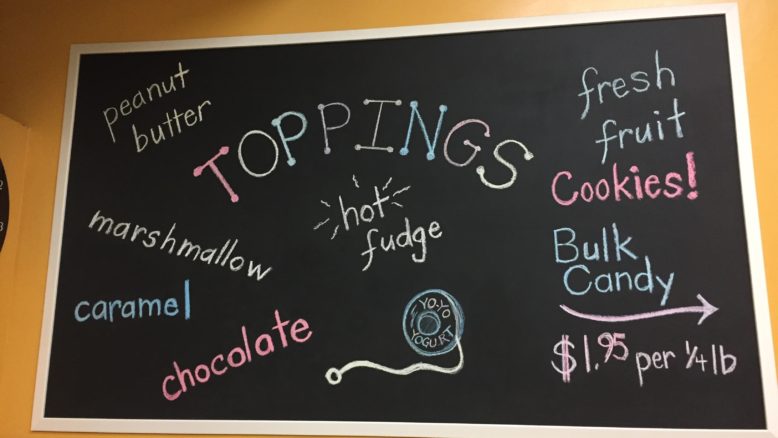 peanut
butter
TOPPINGS
fresh
fruit
Cookies!
hot
fudge
marshmallow
Bulk
Candy
caramel
YO-YO
YOGURT
chocolate
$1.95 per 1/4 lb